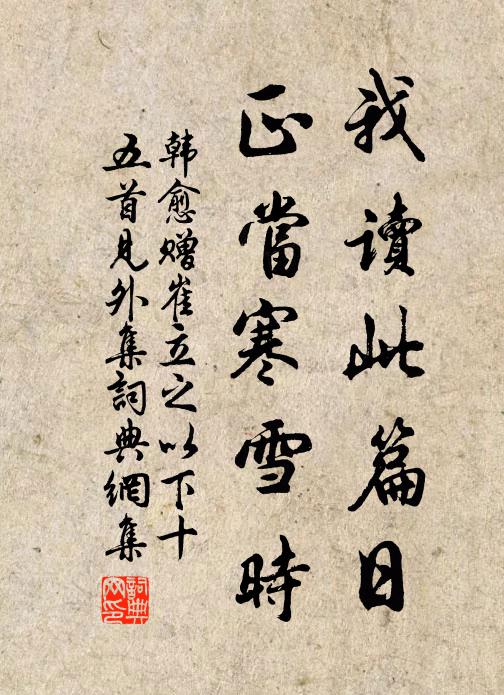 我讀此篇日
正當寒雪時
韓愈贈崔立之以下十
五首見外集詞典網集
詞典網印